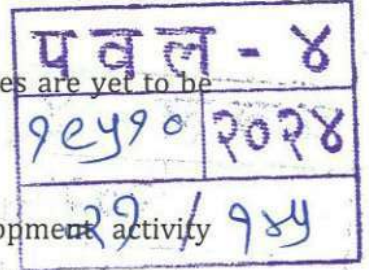 पवल - ४
es are yet to be
१९५१० २०२४
opment activity
२१ / १४५